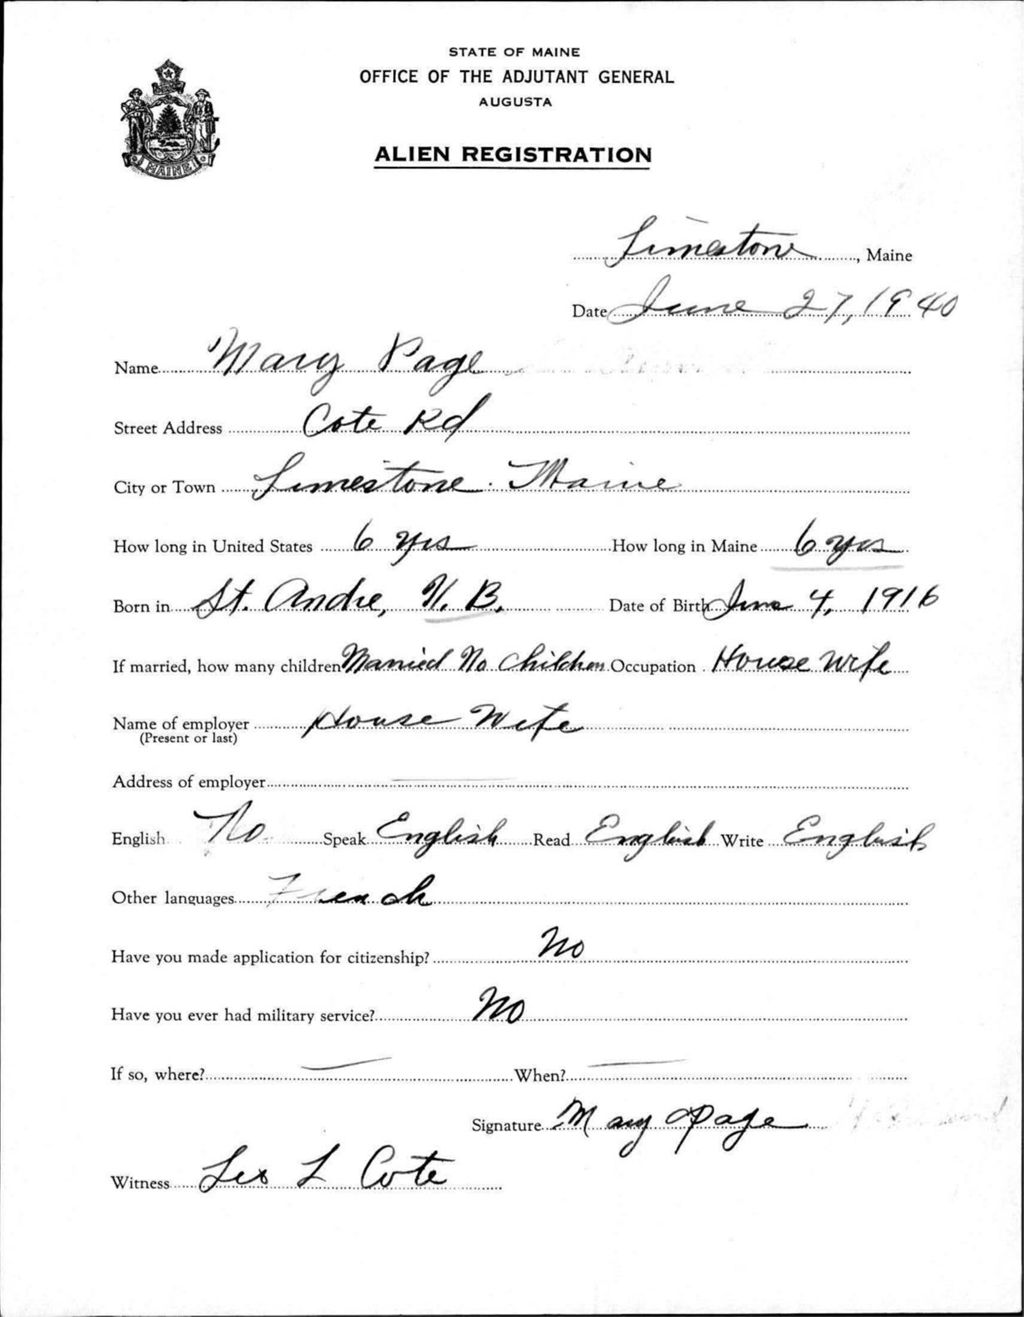 STATE OF MAINE
OFFICE OF THE ADJUTANT GENERAL
AUGUSTA
ALIEN REGISTRATION
MAINE
Limestone, Maine
Date June 27, 1940
Name Mary Page
Street Address Cote Rd
City or Town Limestone. Maine
How long in United States 6 yrs How long in Maine 6 yrs
Born in St. Andre, N. B. Date of Birth June 4, 1916
If married, how many children Married No Children Occupation House Wife
Name of employer House Wife
(Present or last)
Address of employer
English No Speak English Read English Write English
Other languages French
Have you made application for citizenship? No
Have you ever had military service? No
If so, where? When?
Signature Mary Page
Witness Leo L Cote